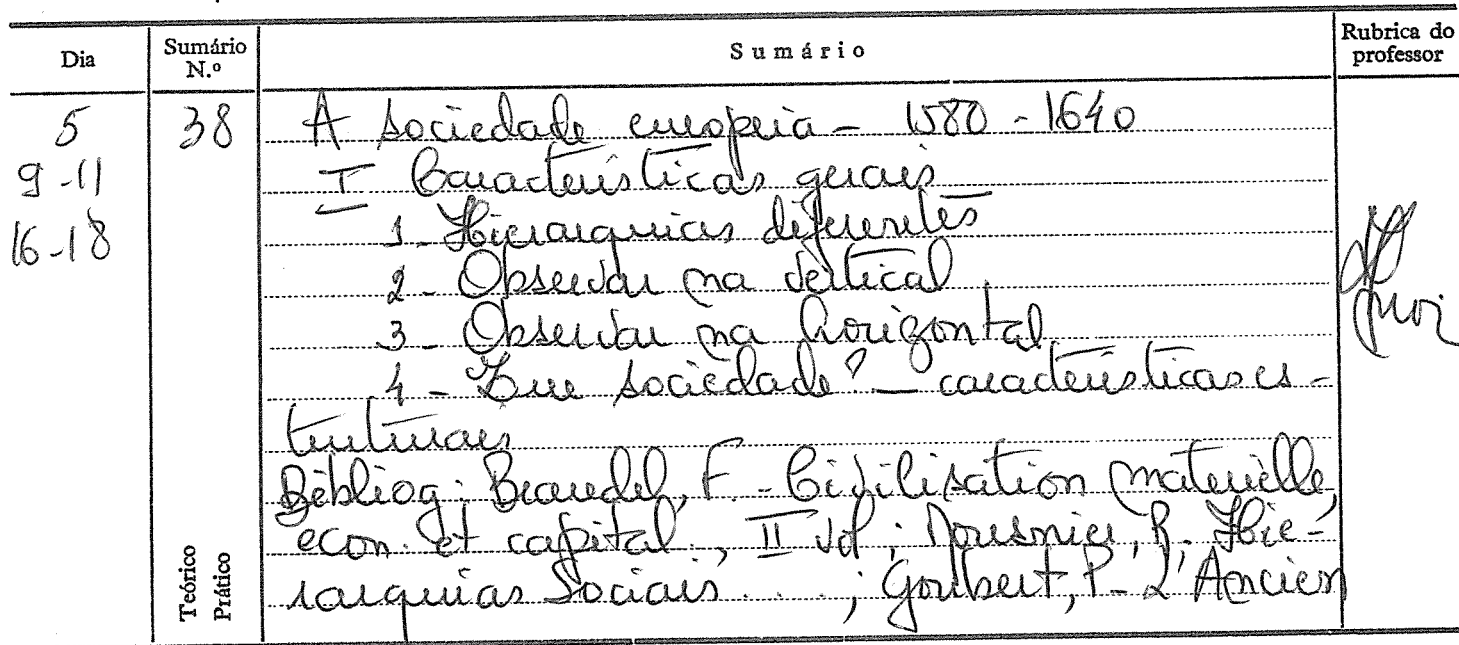 Dia Sumário N.º Sumário Rubrica do professor
5 38 A sociedade europeia - 1580 - 1640
9-11 I Características gerais
16-18 1- Hierarquias diferentes
2- Observar na vertical
3- Observar na horizontal
4- Que sociedade? - características es-
truturais
Bibliog: Braudel, F. - Civilisation materielle,
econ. et capital., II vol; Mousnier, R. Hie-
rarquias Sociais...; Goubert, P- L'Ancien
Teórico
Prático